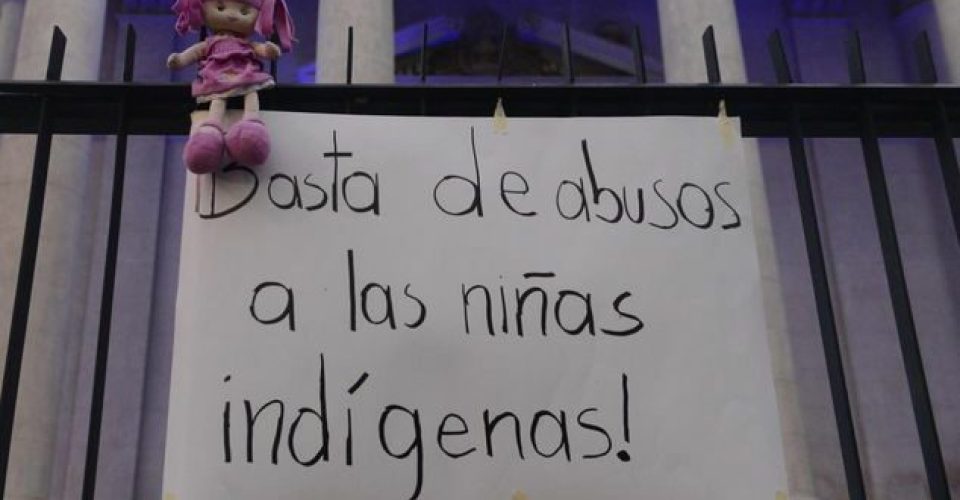 Basta de abusos
a las niñas
indígenas!